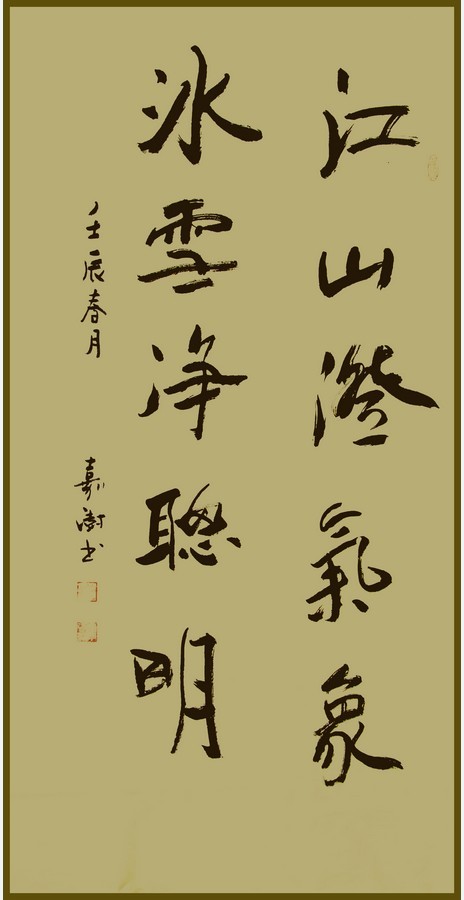 江山澄氣象
冰雪淨聰明
壬辰春月
嘉澍书